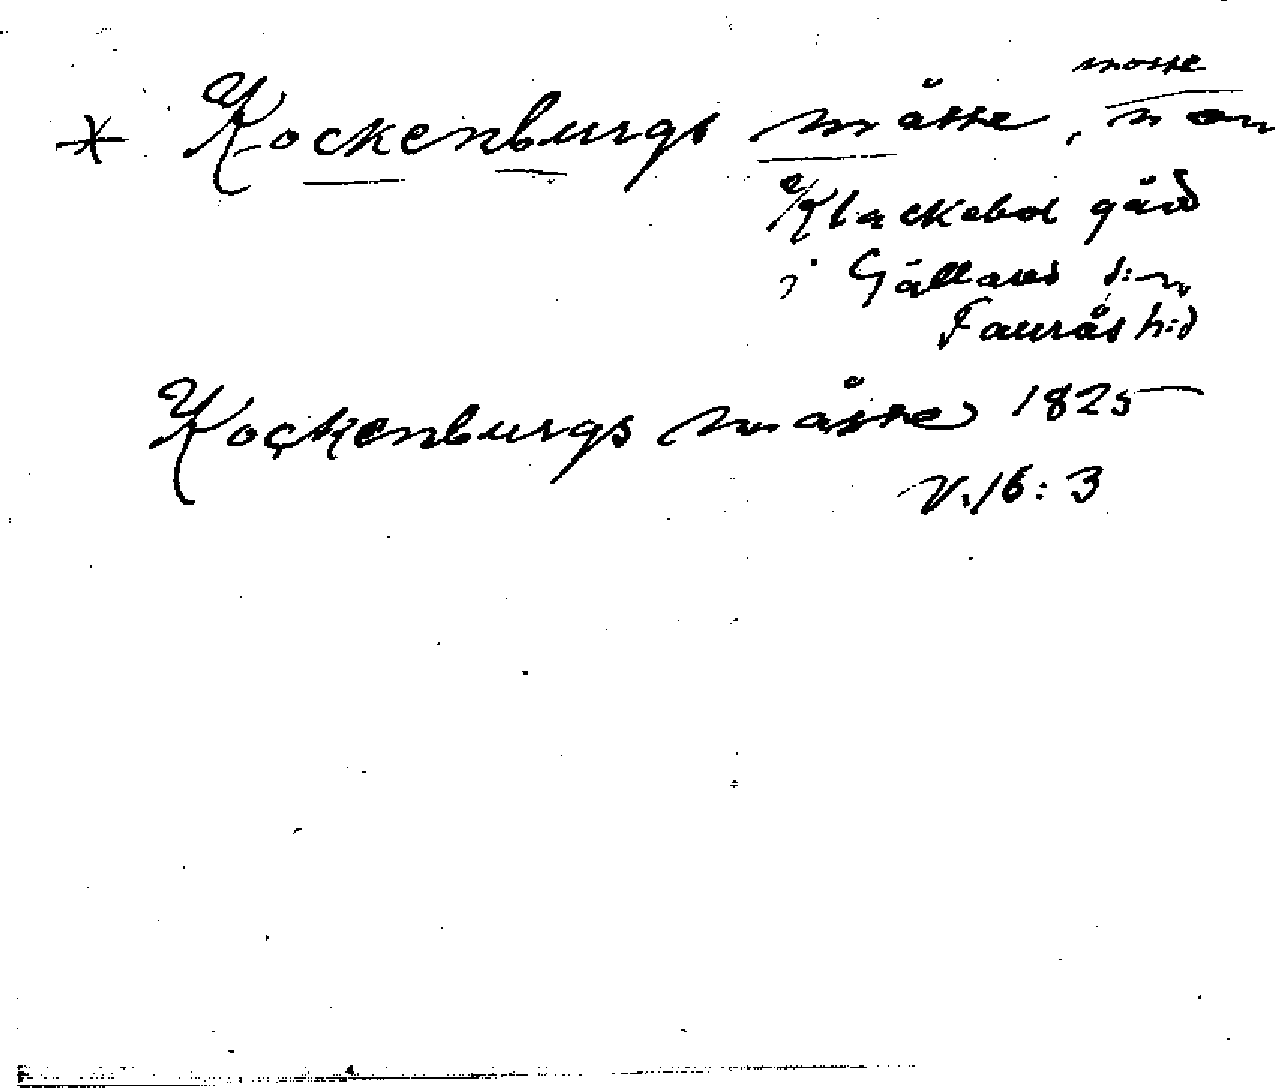 mosse
* Kockenburgs måsse, n om
Klackebol gård
i Gällared s:n
Faurås h:d
Kockenburgs måsse 1825
V. 16: 3